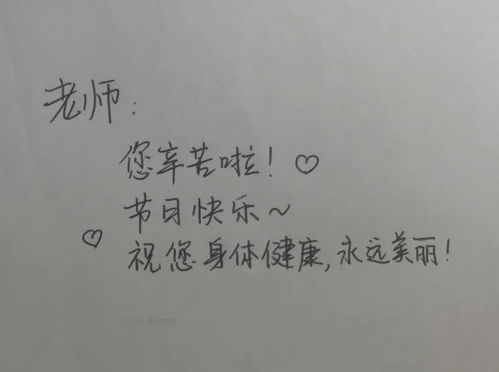 老师:
您辛苦啦!♡
节日快乐~
♡ 祝您身体健康,永远美丽!